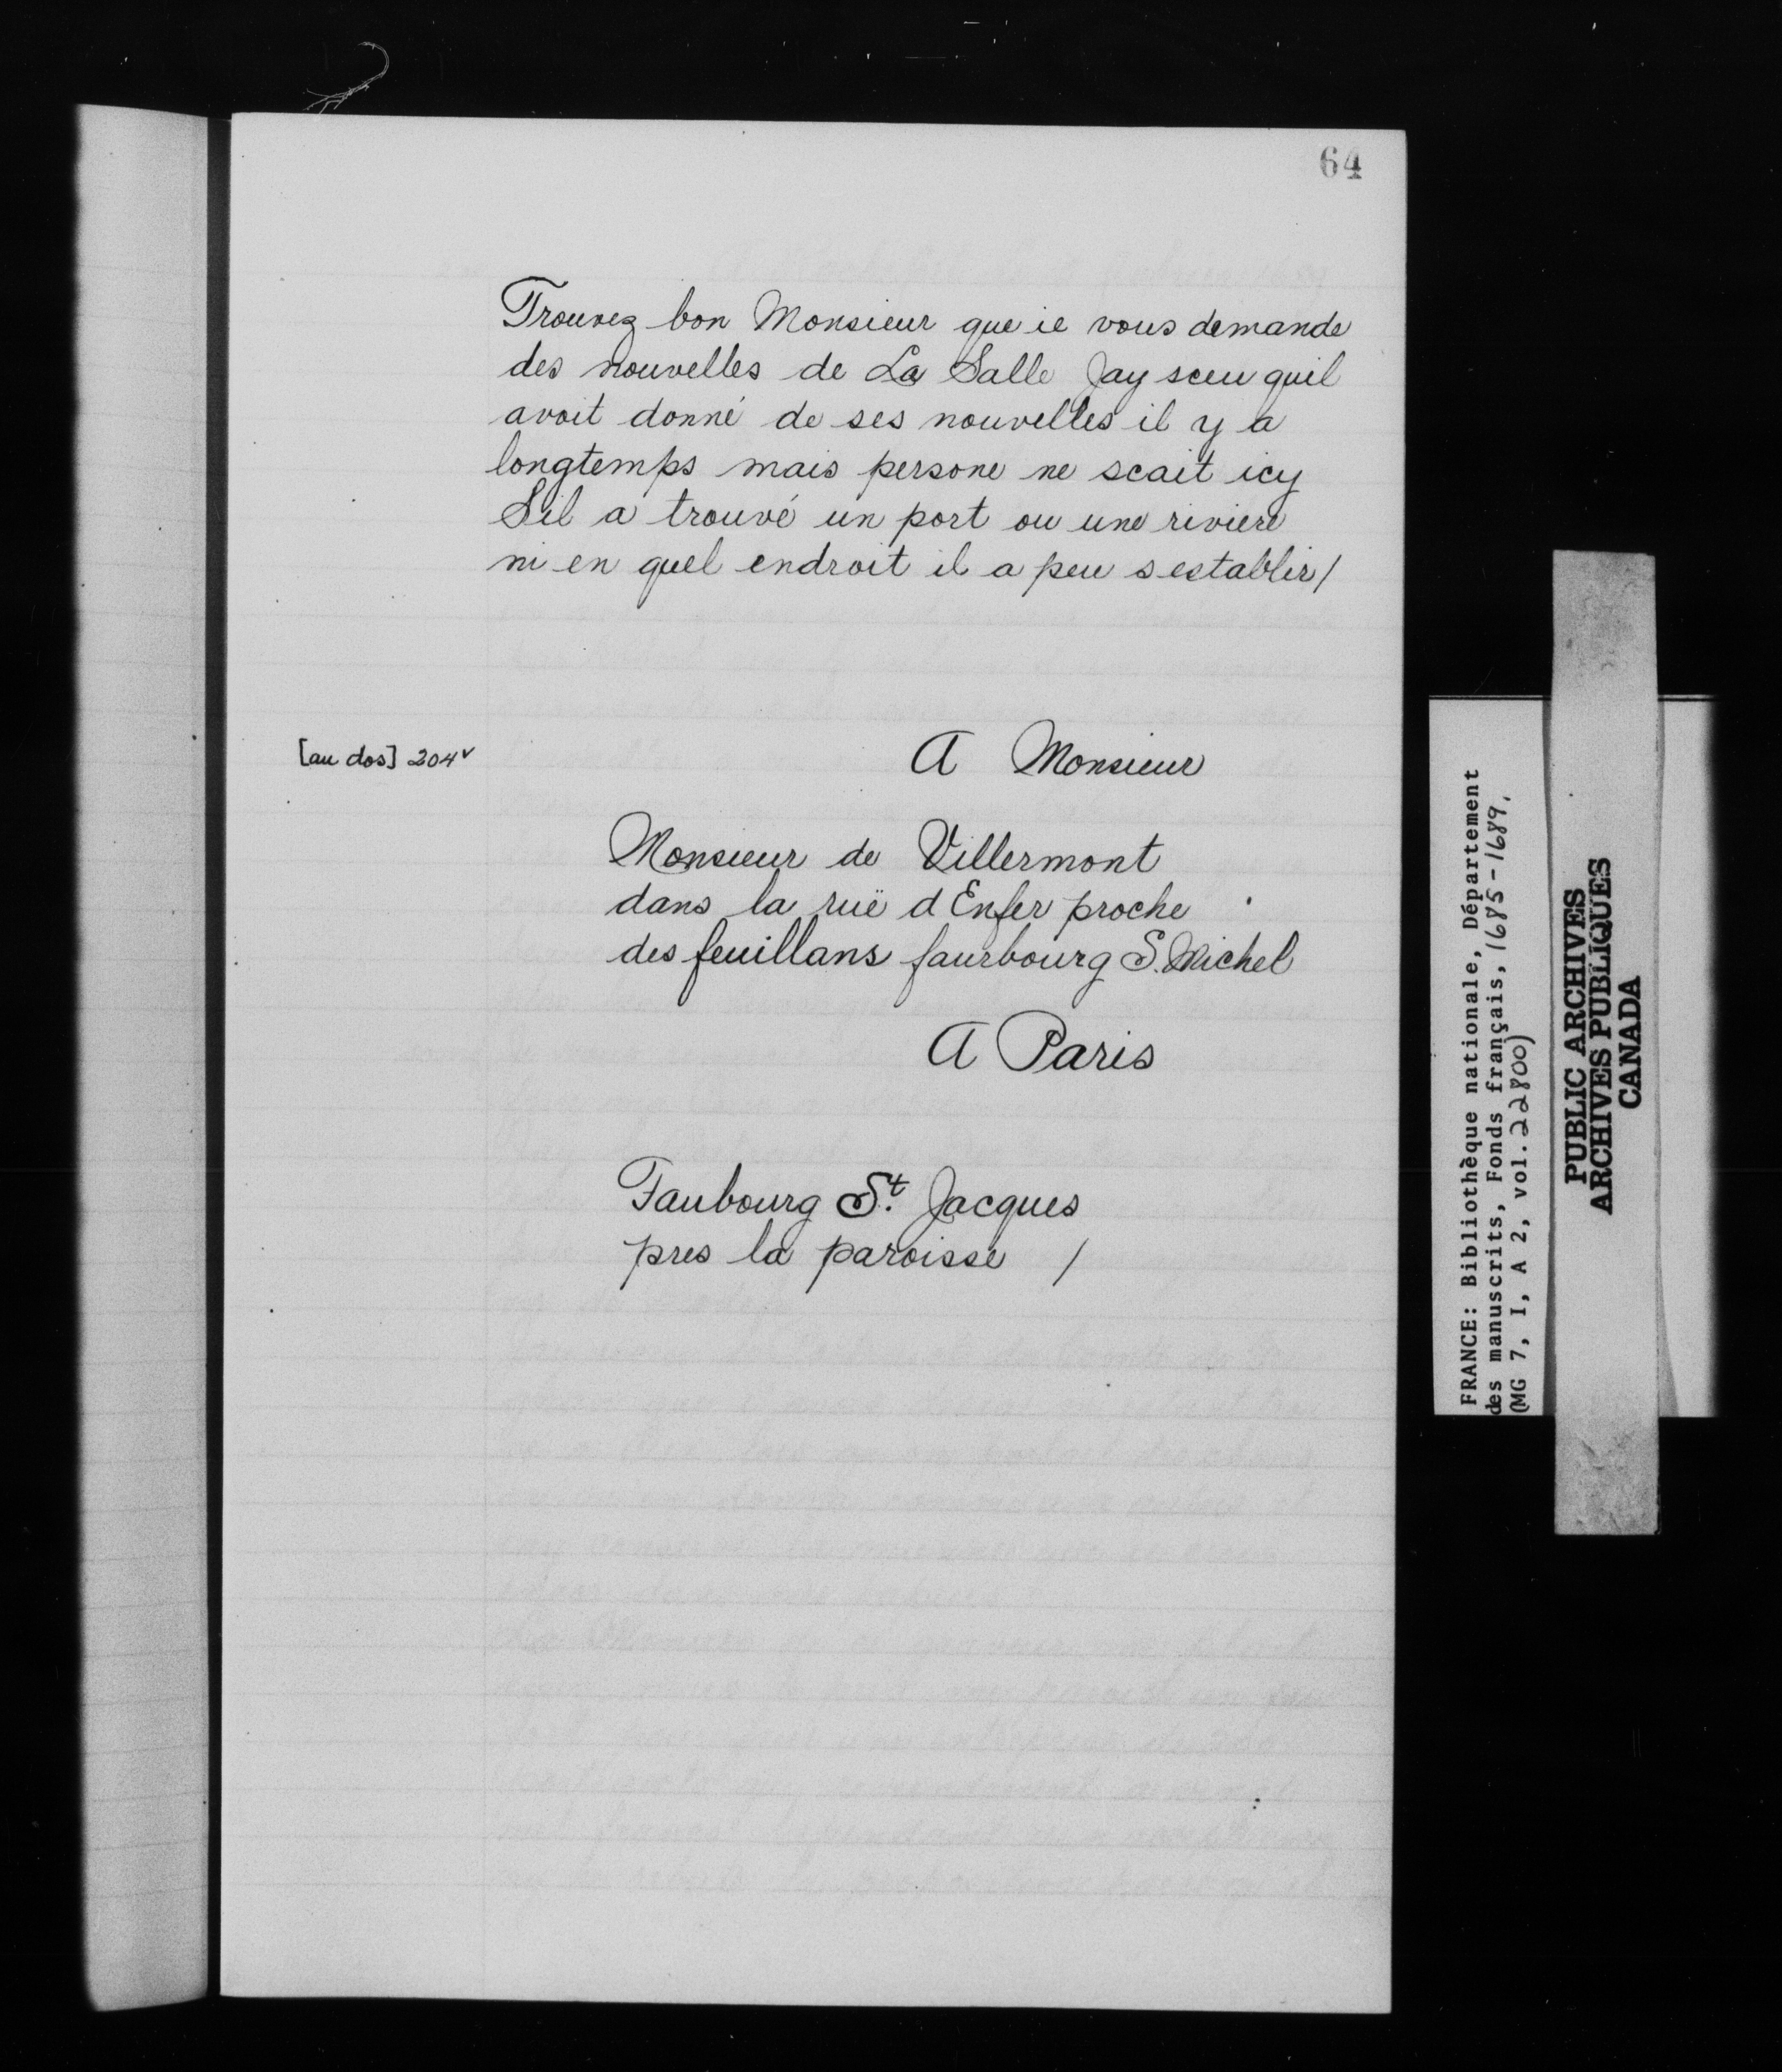 64
Trouvez bon Monsieur que ie vous demande
des nouvelles de La Salle Jay sceu quil
avoit donné de ses nouvelles il y a
longtemps mais persone ne scait icy
Sil a trouvé un port ou une riviere
ni en quel endroit il a peu sestablir/
[au dos] 204v
A Monsieur
Monsieur de Villermont
dans la ruë d Enfer proche
des feuillans faurbourg S. Michel
A Paris
Faubourg St. Jacques
pres la paroisse /
FRANCE: Bibliothèque nationale, Département
des manuscrits, Fonds français, 1685-1689.
(MG 7, I, A 2, vol. 22800)
PUBLIC ARCHIVES
ARCHIVES PUBLIQUES
CANADA